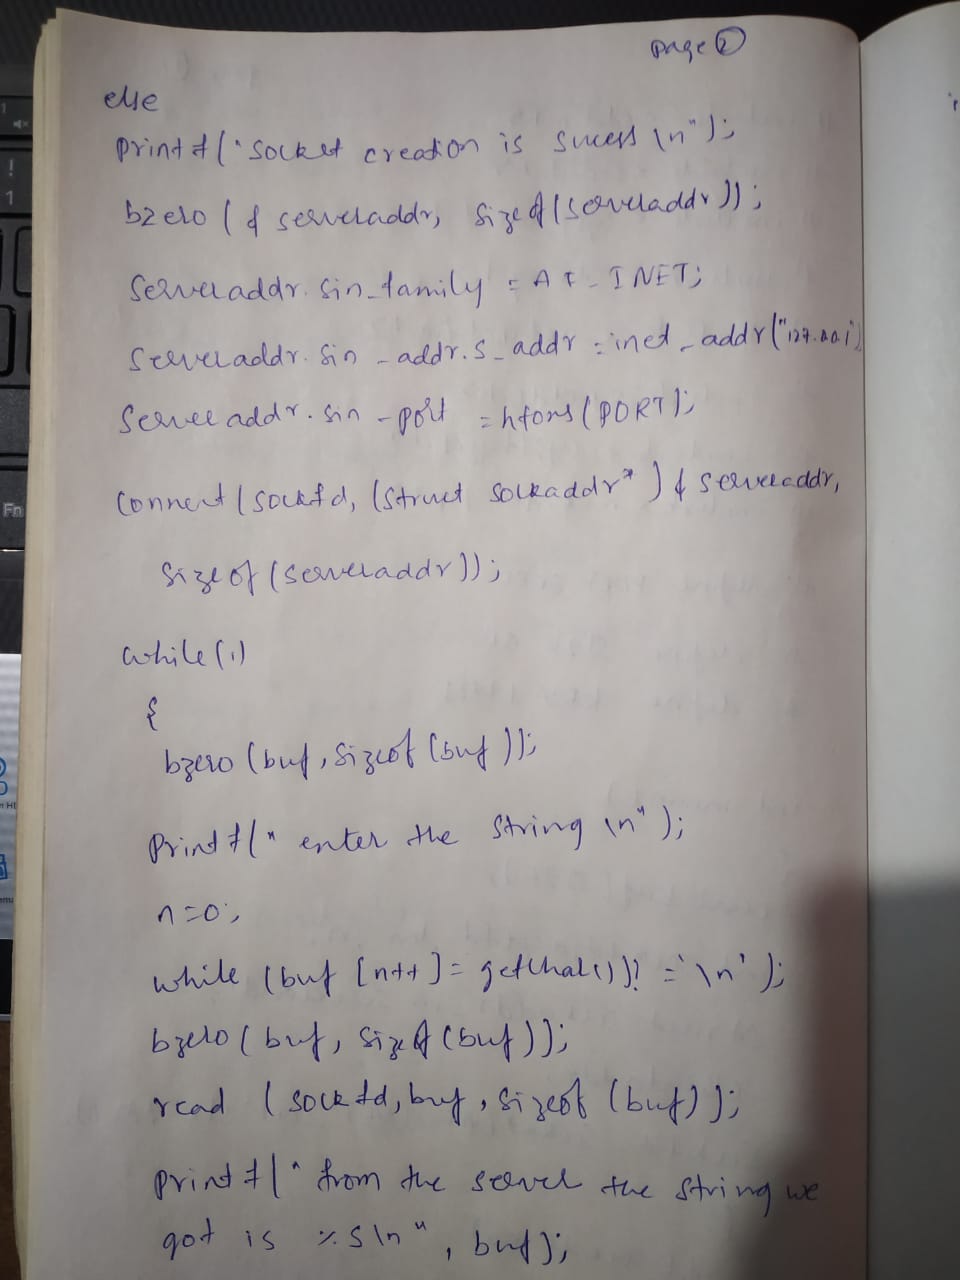 page ②
else
printf("socket creation is sucess \n");
bzero(& serveraddr, sizeof(serveraddr));
serveraddr.sin_family = AF_INET;
serveraddr.sin_addr.s_addr = inet_addr("127.0.0.1")
serveraddr.sin_port = htons(PORT);
connect(sockfd, (struct sockaddr*) & serveraddr,
sizeof(serveraddr));
while(1)
{
bzero(buf, sizeof(buf));
printf(" enter the string \n");
n=0;
while (buf [n++] = getchar())! = '\n');
bzero(buf, sizeof(buf));
read (sockfd, buf, sizeof(buf));
printf(" from the server the string we
got is %s\n", buf);
Fn